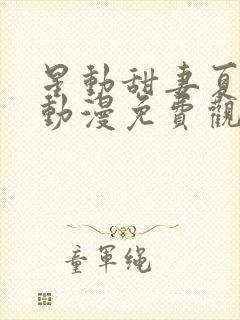 星動甜妻夏
動漫免費觀
童軍绳